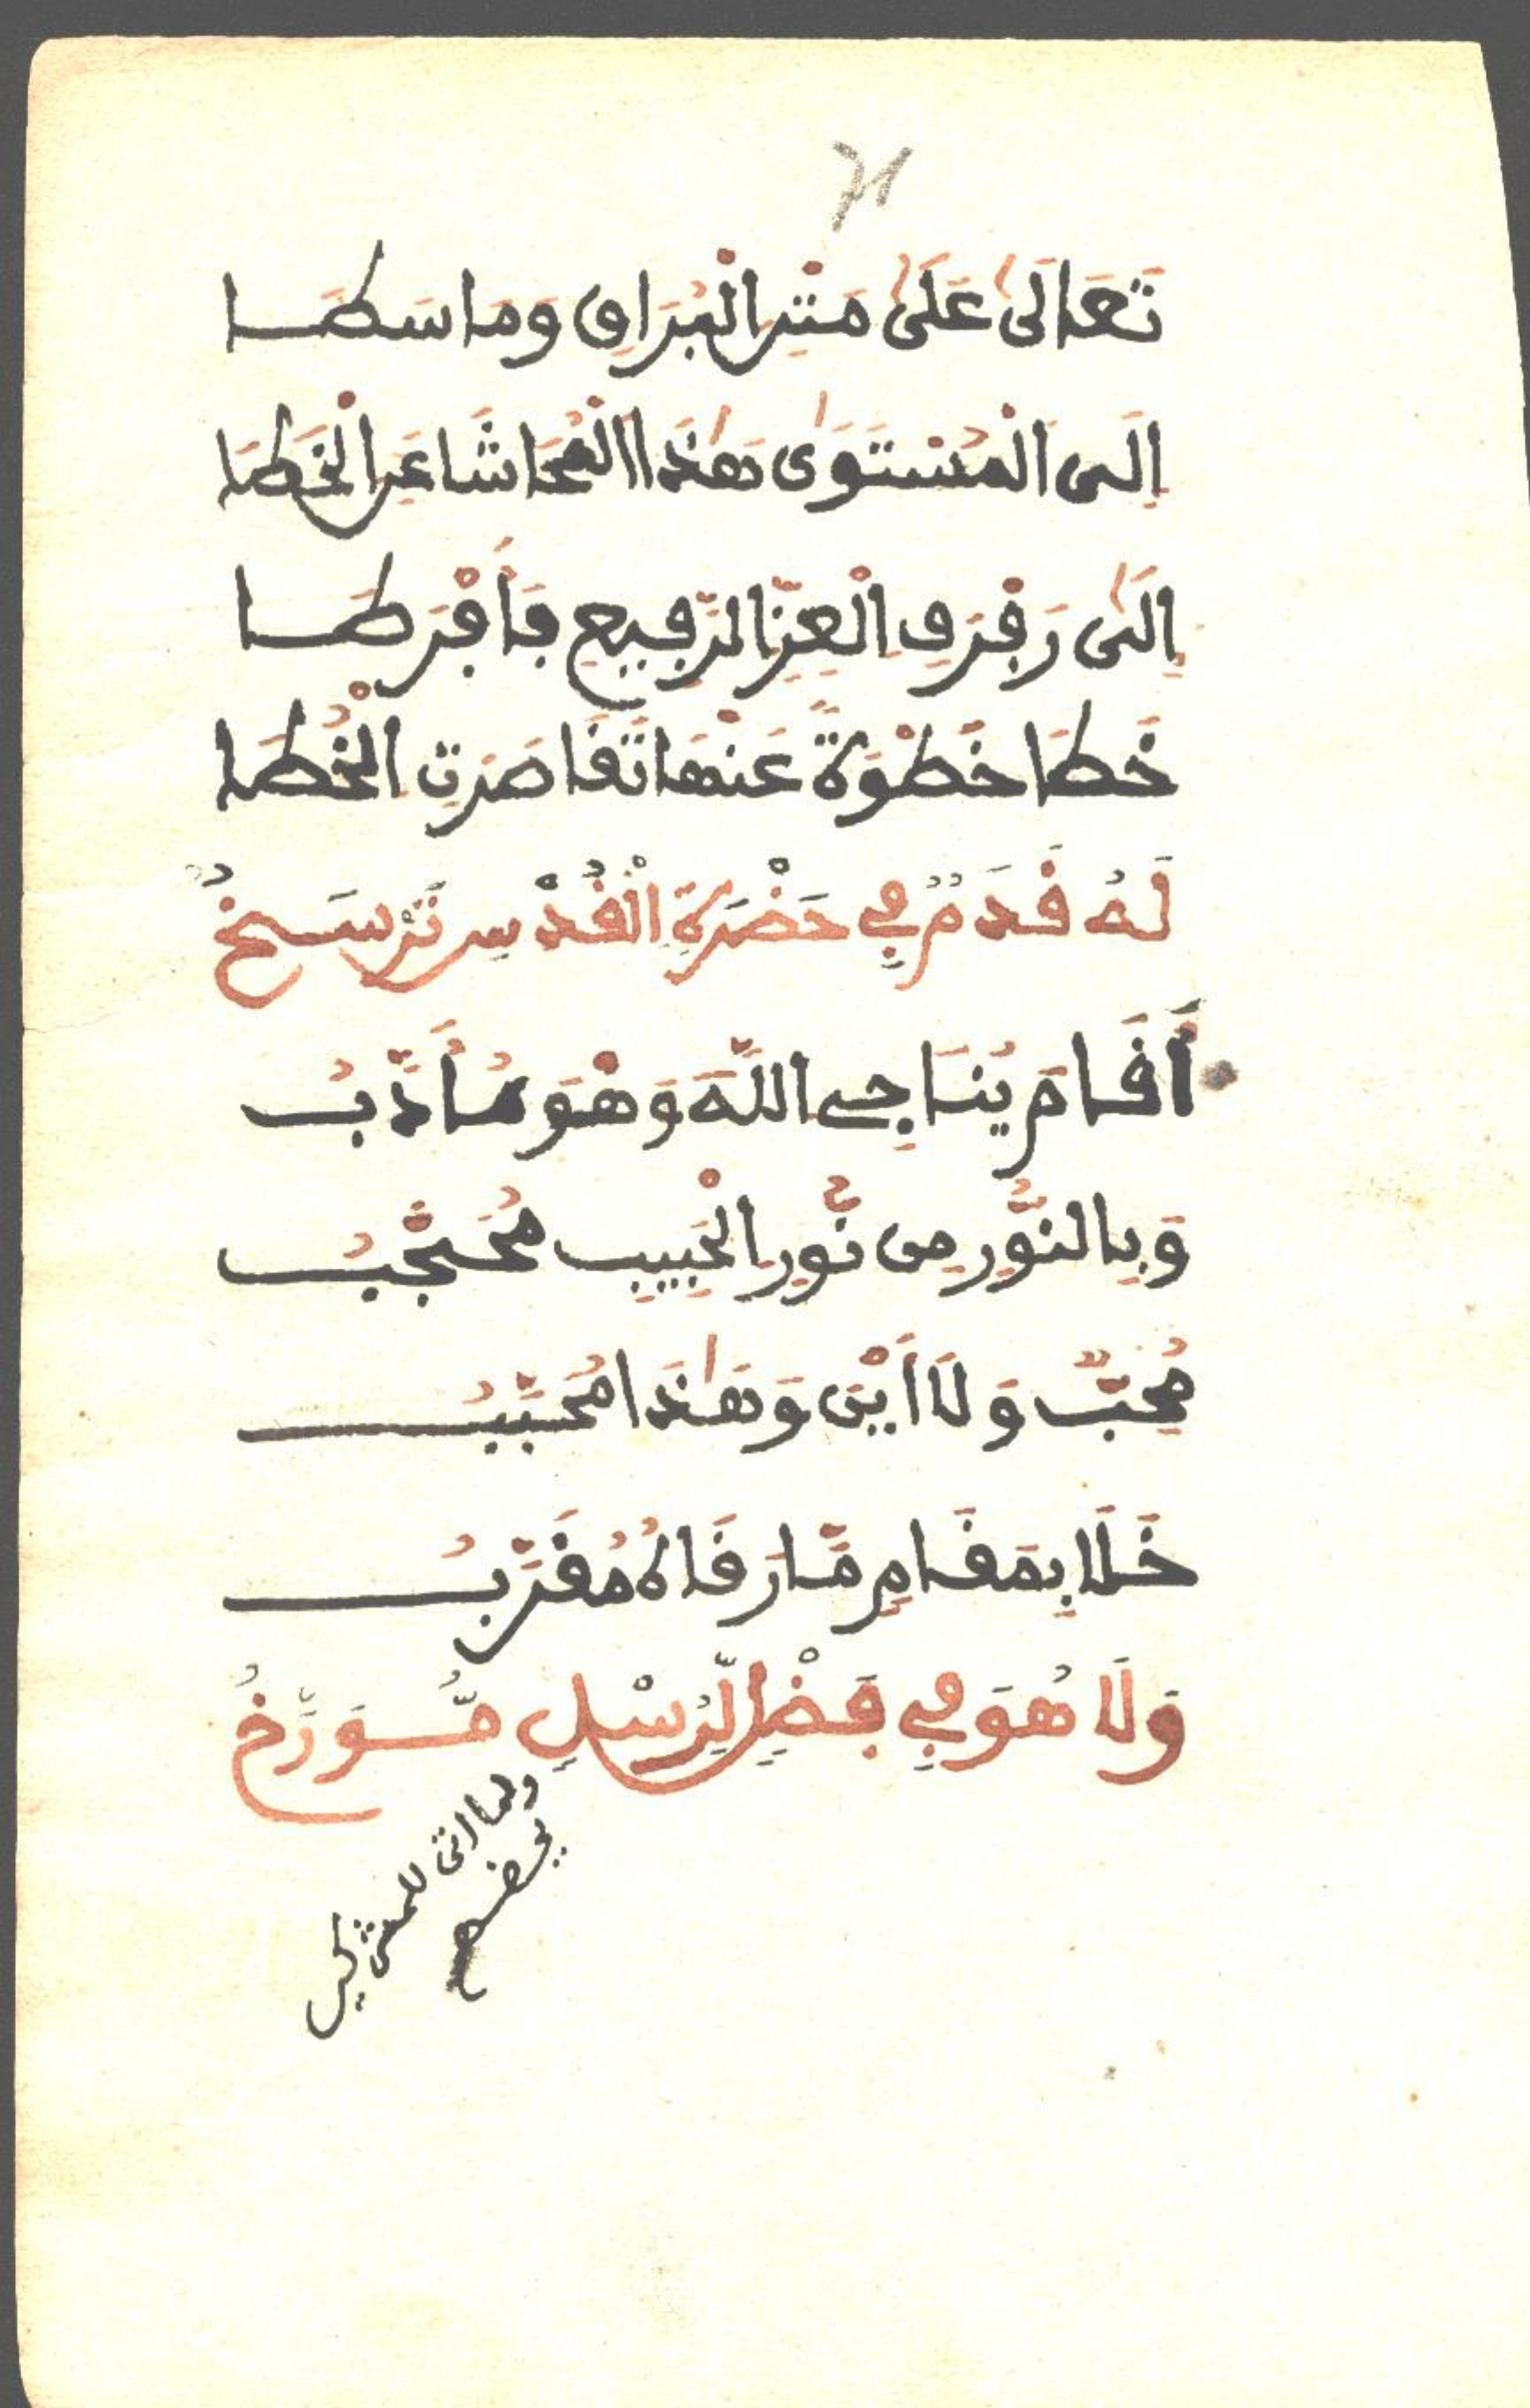 71
تَعَالَىٰ عَلَىٰ مَتْنِ الْبُرَاقِ وَمَا سَطَا
اِلَى الْمُسْتَوَىٰ هَٰذَا الْمُحَاشَا عَنِ الْخَطَا
اِلَىٰ رَفْرَفِ الْعِزِّ الرَّفِيعِ فَأَفْرَطَا
خَطَا خَطْوَةً عَنْهَا تَقَاصَرَتِ الْخُطَا
لَهُ قَدَمٌ فِي حَضْرَةِ الْقُدْسِ تَرْسَخُ
أَقَامَ يُنَاجِي اللَّهَ وَهْوَ مُأَدَّبُ
وَبِالنُّورِ مِن نُّورِ الْحَبِيبِ مُحَجَّبُ
مُحِبٌّ وَلَا أَيْنَ وَهَٰذَا مُحَبَّبُ
خَلَا بِمَقَامٍ مَّا رَقَاهُ مُقَرَّبُ
وَلَا هُوَ فِي بَعْضِ الرُّسْلِ مُّوَرَّخُ
ولما اتى للمشركين
يفضح